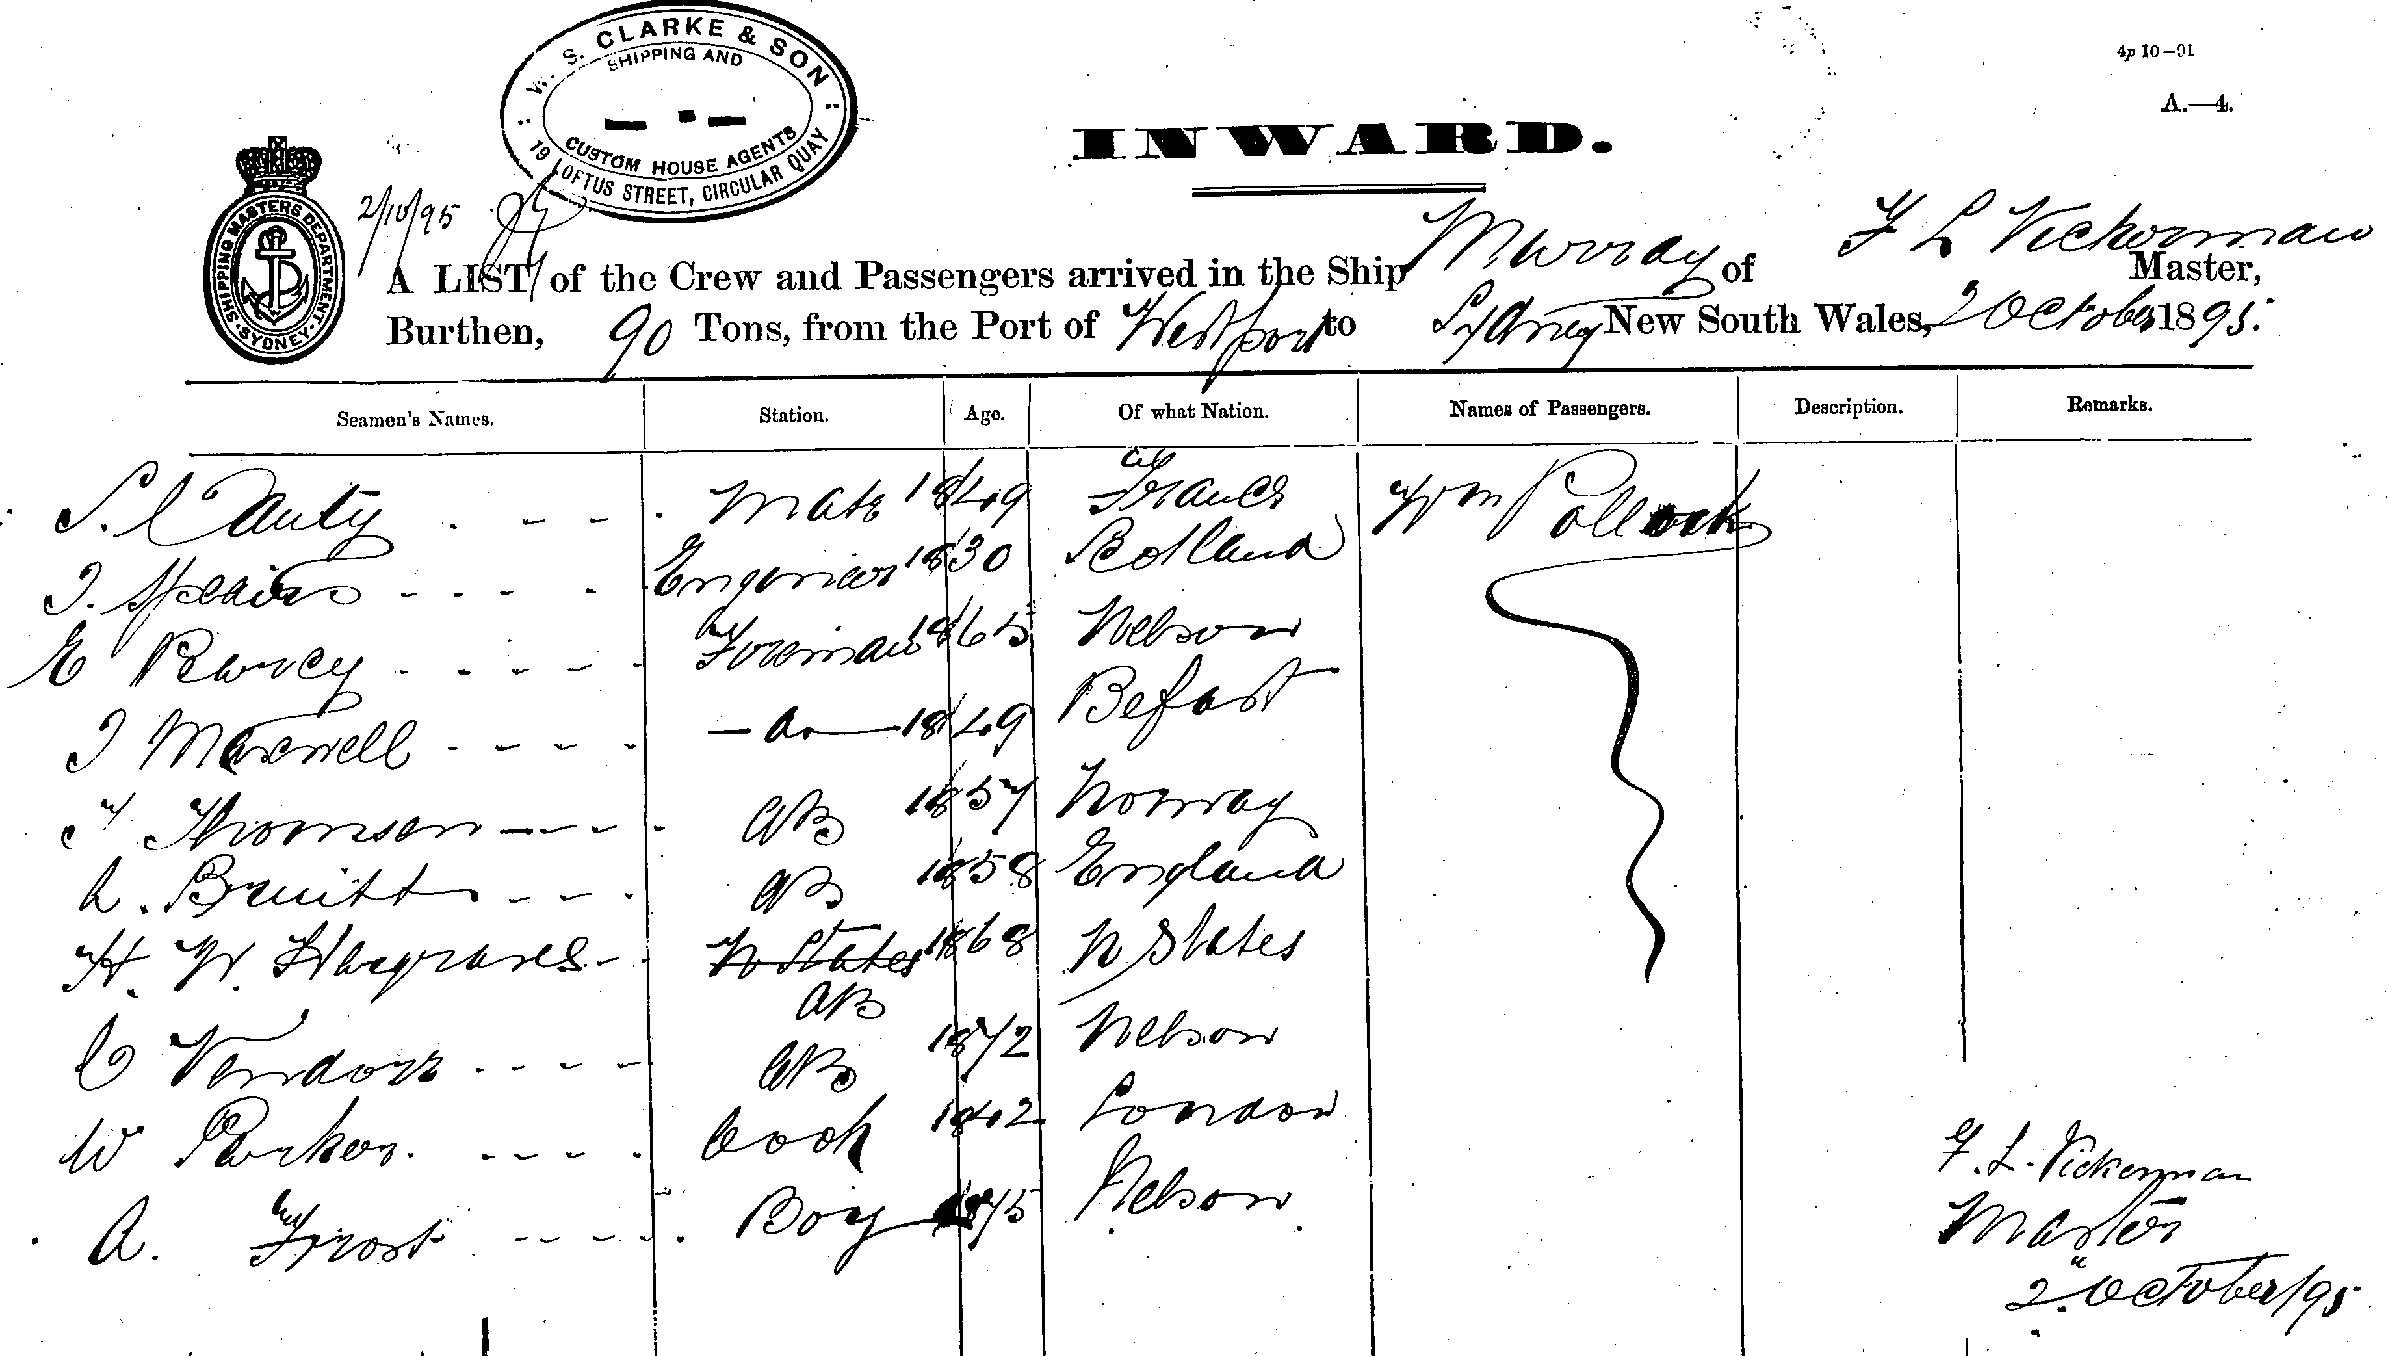 W. S. CLARKE & SON
SHIPPING AND
CUSTOM HOUSE AGENTS
19 LOFTUS STREET, CIRCULAR QUAY
4p 10-91
A.—4.
INWARD.
SHIPPING MASTERS DEPARTMENT SYDNEY
2/10/95
A LIST of the Crew and Passengers arrived in the Ship Murray of F L Vickerman Master,
Burthen, 90 Tons, from the Port of Westport to Sydney New South Wales, 2 October 1895.
Seamen's Names. Station. Age. Of what Nation. Names of Passengers. Description. Remarks.
Mate 1849 France Wm Pollock
Engineer 1830 Scotland
E Fireman 1865 Nelson
Maxwell 1849 Befast
Thomsen AB 1857 Norway
AB 1858 England
H. W. Hargraves N States 1868 N States
AB
AB 1872 Nelson
W Parker Cook 1842 London
A. Frost Boy 1875 Nelson
F. L. Vickerman
Master
2 October/95